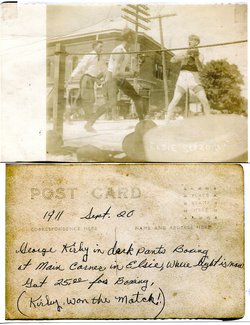 ELSIE
POST CARD
CORRESPONDENCE HERE
NAME AND ADDRESS HERE
1911 Sept. 20
George Kirby in dark Pants Boxing
at Main Corner in Elsie, Where light is now
Got 25.00 for Boxing,
(Kirby, Won the Match!)